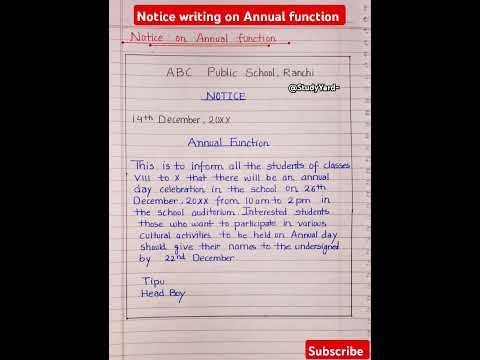 Notice writing on Annual function
Notice on Annual function
ABC Public School, Ranchi
@StudyYard-
NOTICE
14th December, 20XX
Annual Function
This is to inform all the students of classes
VIII to X that there will be an annual
day celebration in the school on 26th
December, 20XX from 10 am to 2 pm in
the school auditorium. Interested students
those who want to participate in various
cultural activities to be held on Annual day
should give their names to the undersigned
by 22nd December
Tipu
Head Boy
Subscribe